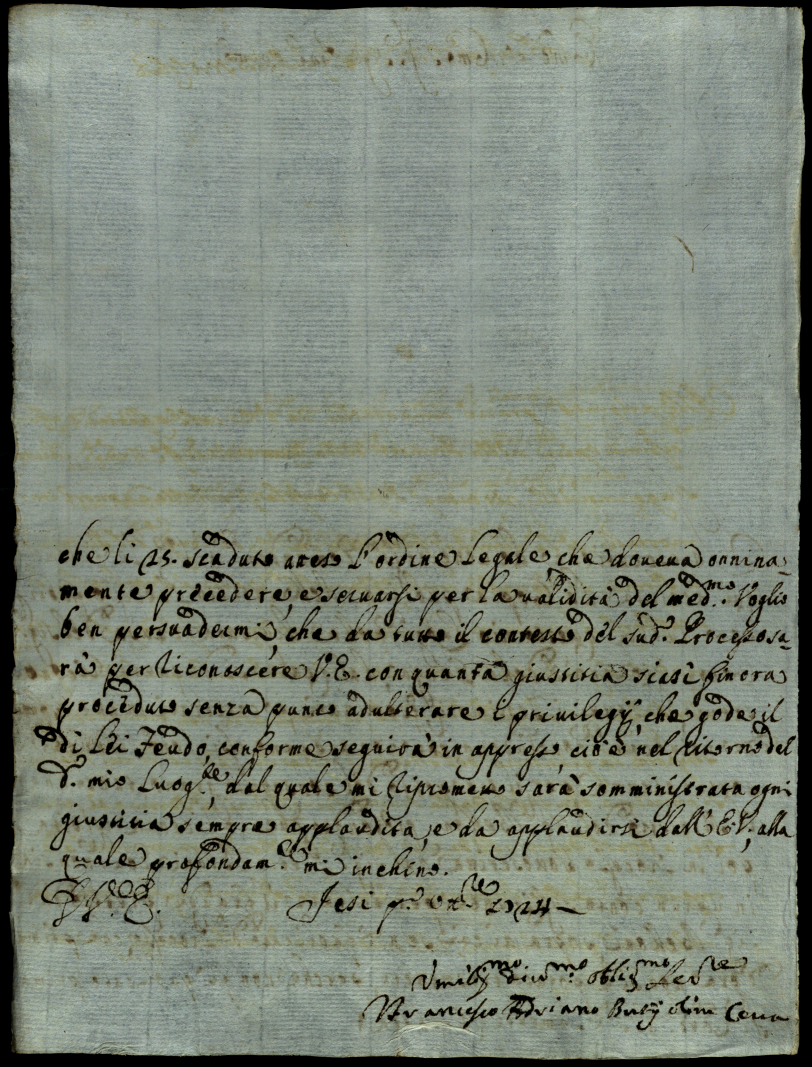 che li 25. scaduto atteso l'ordine legale che doveva onnina-
mente precedere, e servarsi per la validità del med.mo. Voglio
ben persuadermi, che da tutto il contesto del sud.o Processo sa-
rà per riconoscere V.E. con quanta giustitia siasi finora
proceduto senza punto adulterare i privilegij che gode il
di Lei Feudo, conforme seguirà in appresso cioè nel ritorno del
d.o mio Luog.te, dal quale mi riprometto sarà somministrata ogni
giustitia sempre applaudita, e da applaudirsi dall'E.V. alla
quale profondam.te mi inchino.
Jesi p.o 1724
Umiliss.mo Div.mo Oblig.mo Ser.re
Francesco Adriano